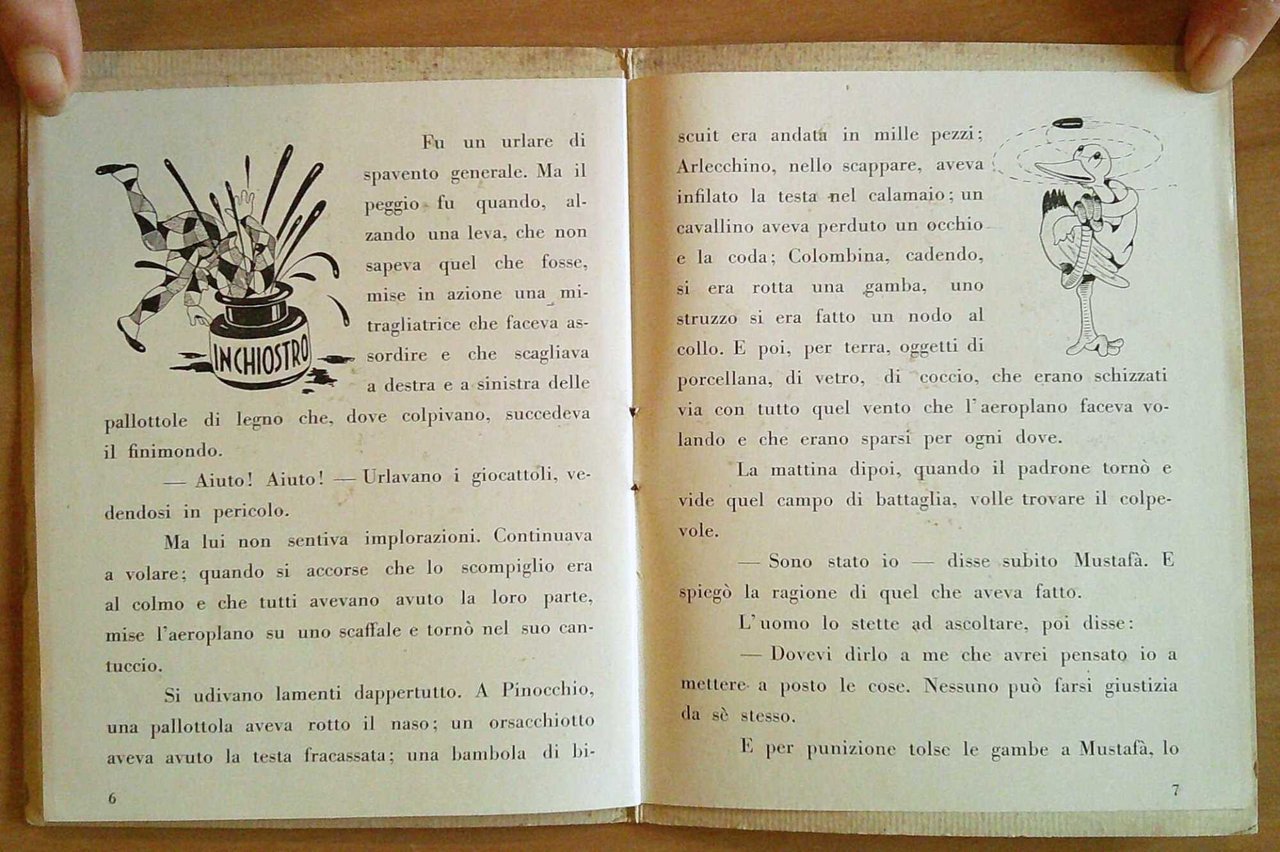 INCHIOSTRO
Fu un urlare di
spavento generale. Ma il
peggio fu quando, al-
zando una leva, che non
sapeva quel che fosse,
mise in azione una mi-
tragliatrice che faceva as-
sordire e che scagliava
a destra e a sinistra delle
pallottole di legno che, dove colpivano, succedeva
il finimondo.
— Aiuto! Aiuto! — Urlavano i giocattoli, ve-
dendosi in pericolo.
Ma lui non sentiva implorazioni. Continuava
a volare; quando si accorse che lo scompiglio era
al colmo e che tutti avevano avuto la loro parte,
mise l'aeroplano su uno scaffale e tornò nel suo can-
tuccio.
Si udivano lamenti dappertutto. A Pinocchio,
una pallottola aveva rotto il naso; un orsacchiotto
aveva avuto la testa fracassata; una bambola di bi-
6
scuit era andata in mille pezzi;
Arlecchino, nello scappare, aveva
infilato la testa nel calamaio; un
cavallino aveva perduto un occhio
e la coda; Colombina, cadendo,
si era rotta una gamba, uno
struzzo si era fatto un nodo al
collo. E poi, per terra, oggetti di
porcellana, di vetro, di coccio, che erano schizzati
via con tutto quel vento che l'aeroplano faceva vo-
lando e che erano sparsi per ogni dove.
La mattina dipoi, quando il padrone tornò e
vide quel campo di battaglia, volle trovare il colpe-
vole.
— Sono stato io — disse subito Mustafà. E
spiegò la ragione di quel che aveva fatto.
L'uomo lo stette ad ascoltare, poi disse:
— Dovevi dirlo a me che avrei pensato io a
mettere a posto le cose. Nessuno può farsi giustizia
da sè stesso.
E per punizione tolse le gambe a Mustafà, lo
7